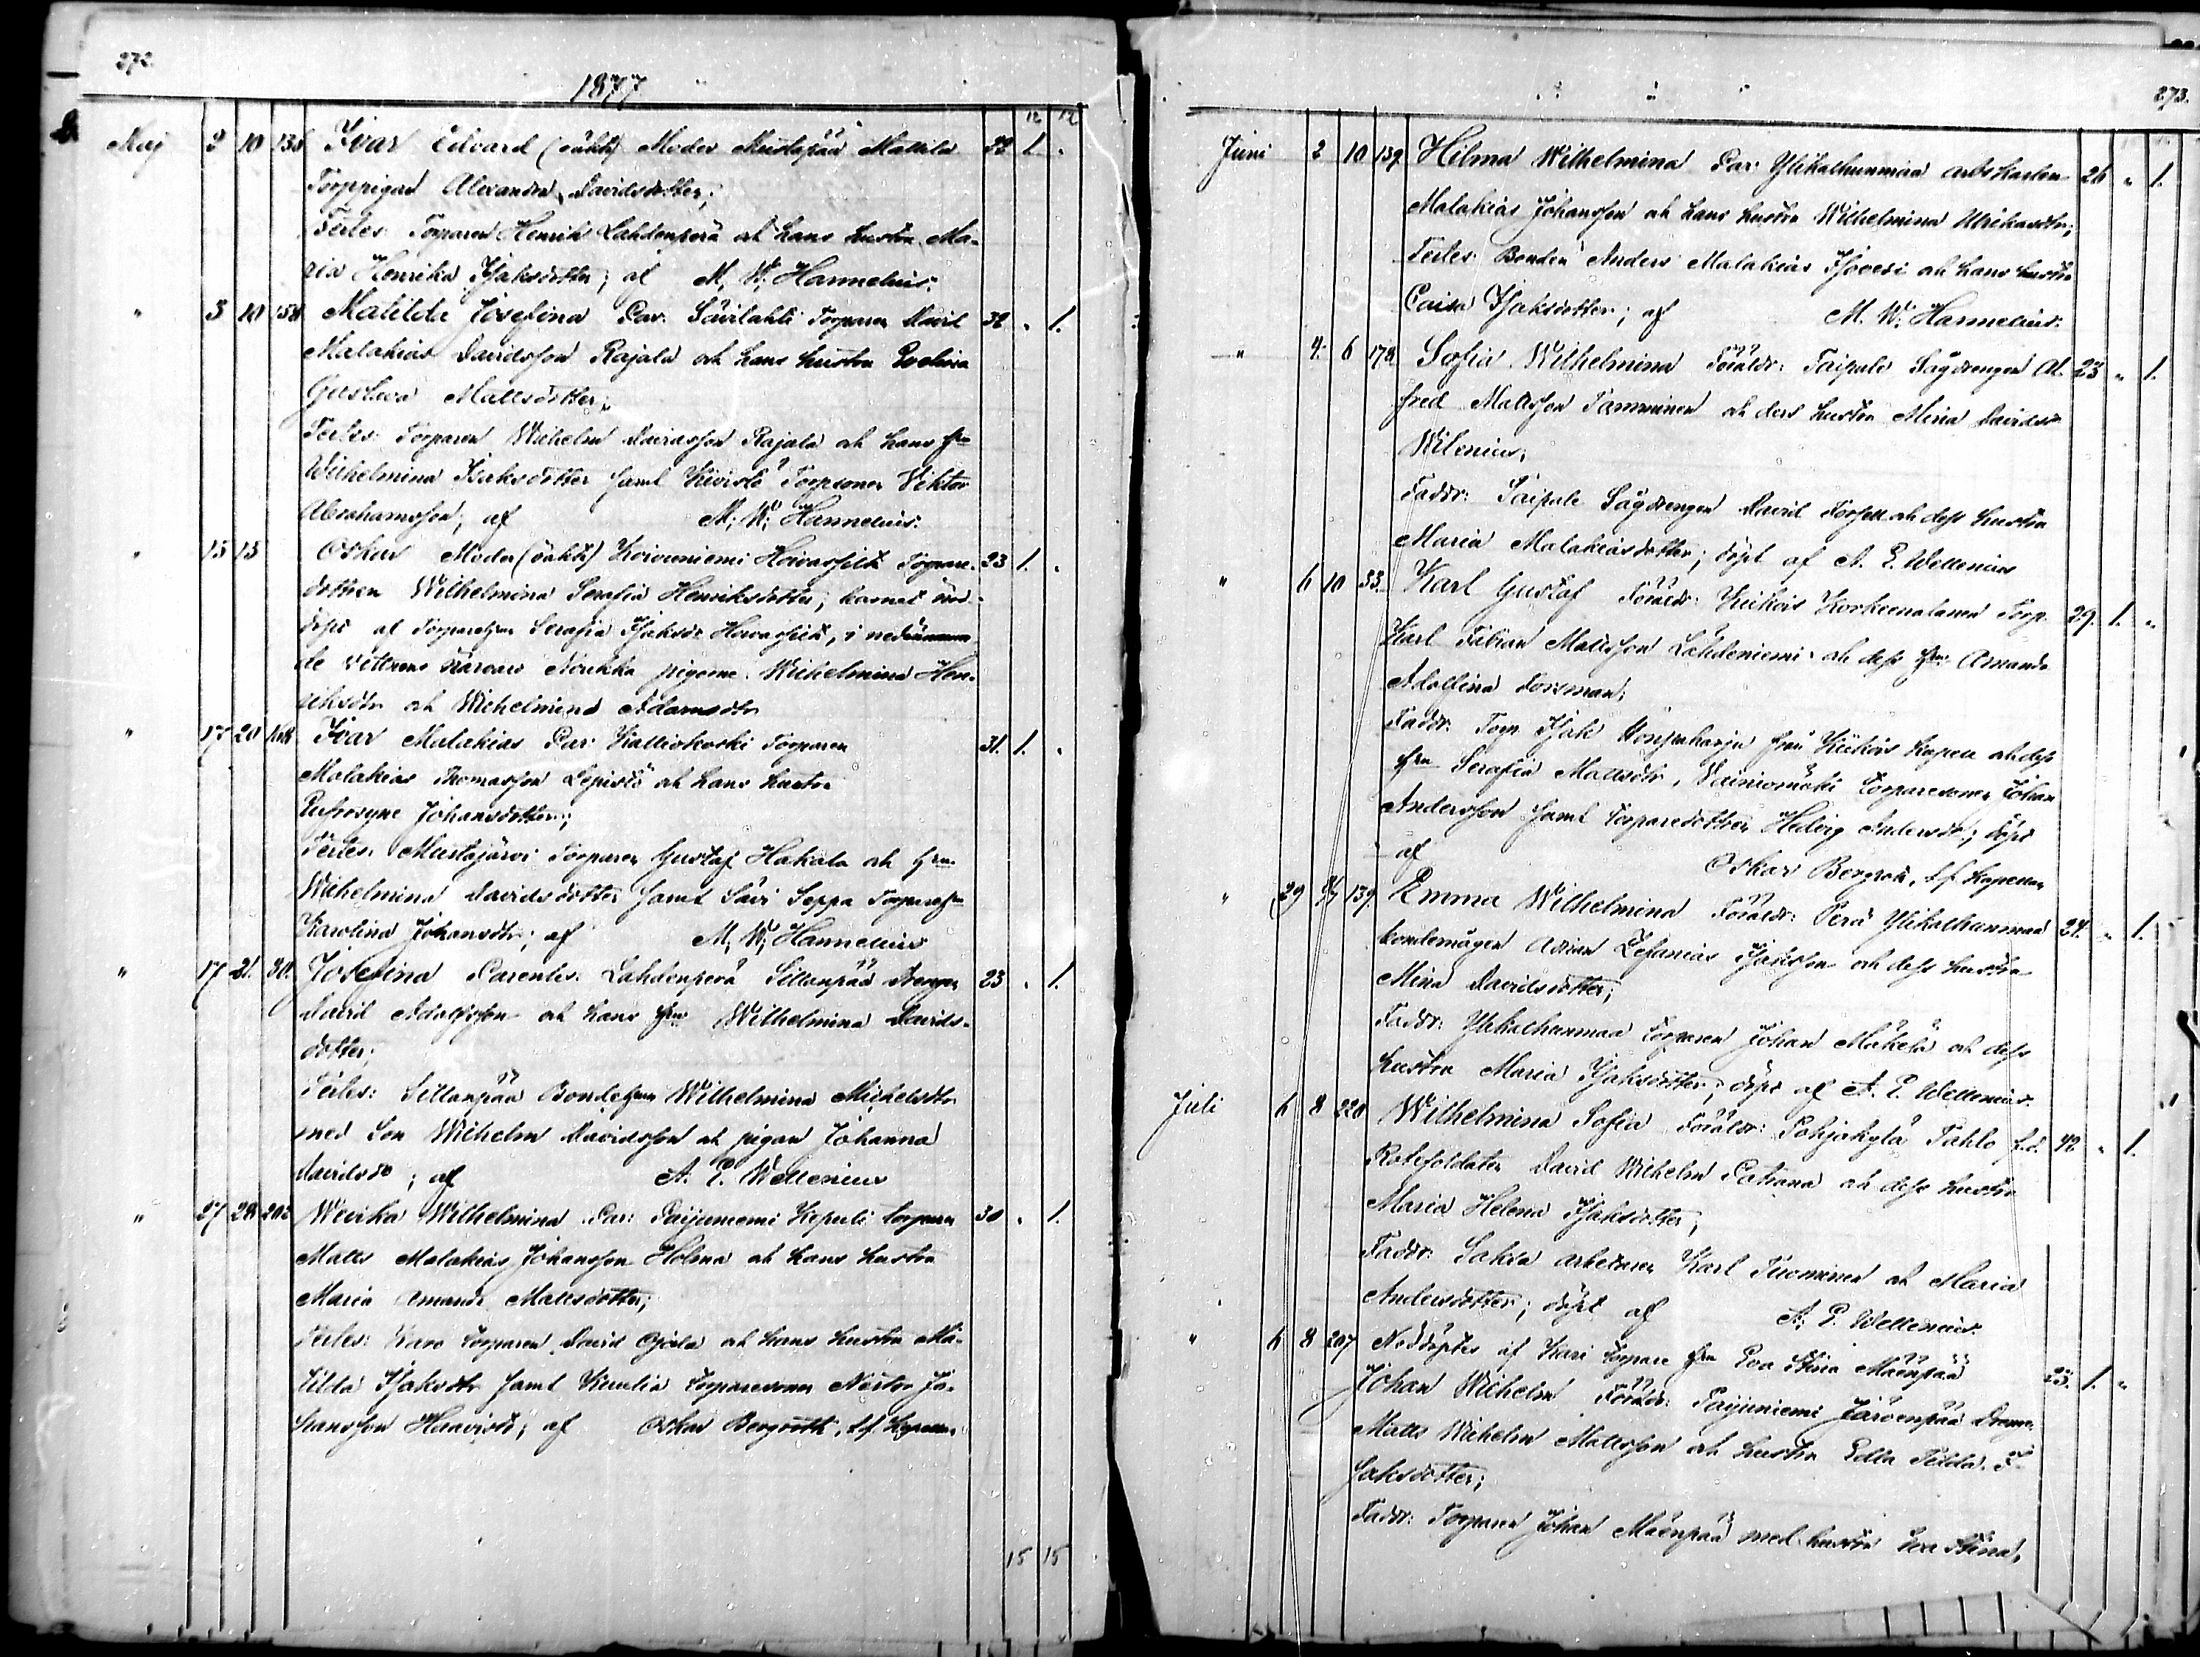 272.
1877
12 12
Maj 2 10 138 Ivar Edvard (oäkta) Moder Mustapää Mattila 32 1. "
Torppigan Alexandra Davidsdotter;
Testes: Torparen Henrik Lahdenperä och hans hustru Ma-
ria Henrika Isaksdotter; af M. W. Hannelius.
" 3 10 158 Matilda Josefina Par. Sävilahti Torparen David 32 " 1.
Malakias Davidsson Rajala och hans hustru Evelina
Gustava Mattsdotter;
Testes: Torparen Wilhelm Davidsson Rajala och hans hru
Wilhelmina Isaksdotter samt Kivistö Torpsonen Viktor
Abrahamsson; af M. W. Hannelius.
" 15 15 Oskar Moder (oäkta) Koivuniemi Torpare- 23 1. "
dottren Wilhelmina Serafia Henriksdotter; barnet nöd-
döpt af Torparehru Serafia Isaksdr i
de vittnens närvaro pigorna Wilhelmina Hen-
riksdtr och Wilhelmina Adamsdtr
" 17 20 168 Ivar Malakias Par: Kalliokoski Torparen 31. 1. "
Malakias Thomasson Lepistö och hans hustru
Eufrosyne Johansdotter;
Testes: Mustajärvi Torparen Gustaf Hakala och hru
Wilhelmina Davidsdotter samt Sävi Seppä Torparehru
Karolina Johansdtr; af M. W. Hannelius
" 17 21. 30. Josefina Parentes: Lahdenperä Sillanpää drengen 23 " 1.
David Adolfsson och hans hru Wilhelmina Davids-
dotter;
Testes: Sillanpää Bondehru Wilhelmina Michelsdtr
med Son Wilhelm Davidsson och pigan Johanna
Davidsdr; af A. E. Wellenius
" 27 28 202 Wilhelmina Par: Paijuniemi Torparen 30 " 1.
Matts Malakias Johansson Holma och hans hustru
Maria Amanda Mattsdotter;
Testes: Torparen David Ojala och hans hustru Ma-
tilda Isaksdtr samt Torparesonen Nestor Jo-
hansson Haavisto; af Oskar Bergroth, t.f. Kapellan.
15 15
273.
Juni 2 10 139. Hilma Wilhelmina Par: Ylikalhunmaa arbskarlen 26 " 1.
Malakias Johansson och hans hustru Wilhelmina Ulrikasdtr;
Testes: Bonden Anders Malakias och hans hustru
Caisa Isaksdotter; af M. W. Hannelius.
" 4. 6 178 Sofia Wilhelmina Föräldr: Taipale Sågdrengen Al- 23 " 1.
fred Mattsson Tamminen och dess hustru Mina Davidsdr
Wilenius;
Faddr: Taipale Sågdrengen David Forsell och dess hustru
Maria Malakiasdotter; döpt af A. E. Wellenius
" 6 10 33. Karl Gustaf Föräldr: Kiikois Torp. 29. 1. "
Karl Fabian Mattsson Lähdeniemi och dess hru Amanda
Adolfina Forsman;
Faddr: Torp. Isak Honjuharju från Kiikois Kapell och dess
hru Serafia Mattsdtr, Vainiomäki Torparesonen Johan
Andersson samt Torparedottren Hedvig Andersdr; döpt
af Oskar Bergroth, t.f. Kapellan
" 29 139. Emma Wilhelmina Föräldr: Perä Ylikalhunmaa 24. " 1.
bondemågen Adrian Zefanias Isaksson och dess hustru
Mina Davidsdotter;
Faddr: Ylikalhunmaa Torparen Johan Mäkelä och dess
hustru Maria Isaksdotter; döpt af A. E. Wellenius.
Juli 6 8 220 Wilhelmina Sofia Föräldr: Pohjakylä Tahlo f.d. 42 " 1.
Rotesoldaten David Wilhelm och dess hustru
Maria Helena Isaksdotter;
Faddr: Arbetaren Karl Tuominen och Maria
Andersdotter; döpt af A. E. Wellenius.
" 6 8 207 Nöddöptes af Kari Torpare hru Eva Stina Mäenpää
Johan Wilhelm Föräldr: Paijuniemi Järvenpää Drengen 23. 1. "
Matts Wilhelm Mattsson och hustru Edla Tilda I-
saksdotter;
Faddr: Torparen Johan Mäenpää med hustru Eva Stina,